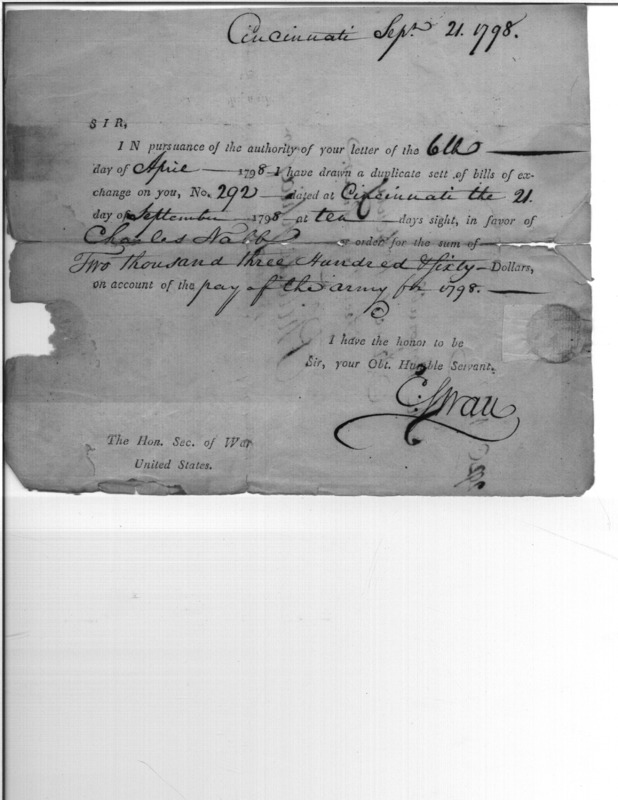 Cincinnati Sept. 21. 1798.
SIR,
IN pursuance of the authority of your letter of the 6th
day of April 1798 I have drawn a duplicate sett of bills of ex-
change on you, No. 292 dated at Cincinnati the 21.
day of September 1798 at ten days sight, in favor of
Charles or order for the sum of
Two thousand three Hundred & Sixty Dollars,
on account of the pay of the army for 1798.
I have the honor to be
Sir, your Obt. Humble Servant.
C Swan
The Hon. Sec. of War
United States.